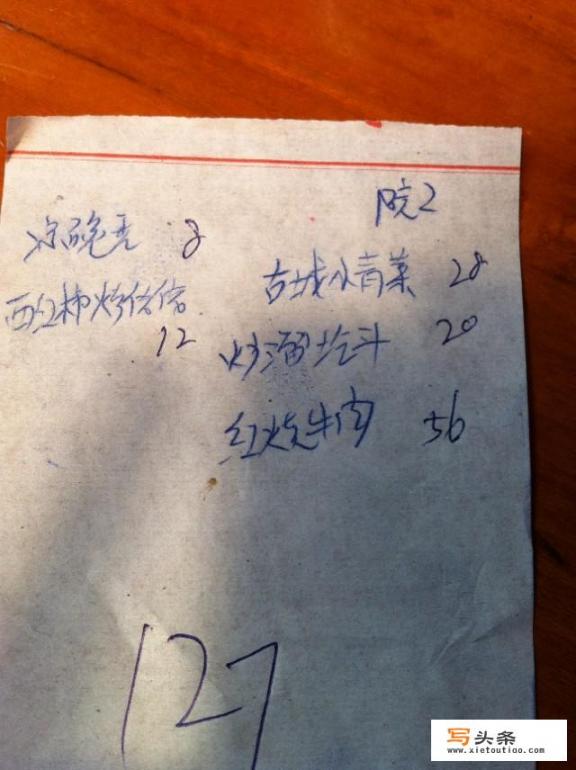 院2
凉碗豆 8
古城小青菜 28
西红柿炒 12
炒溜 20
红烧牛肉 56
127
写头条
www.xietoutiao.com